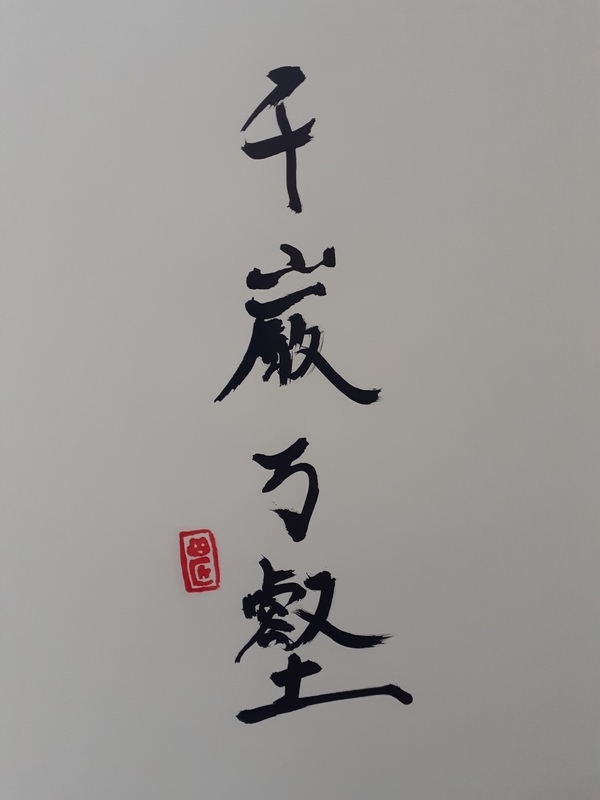 千巖万壑